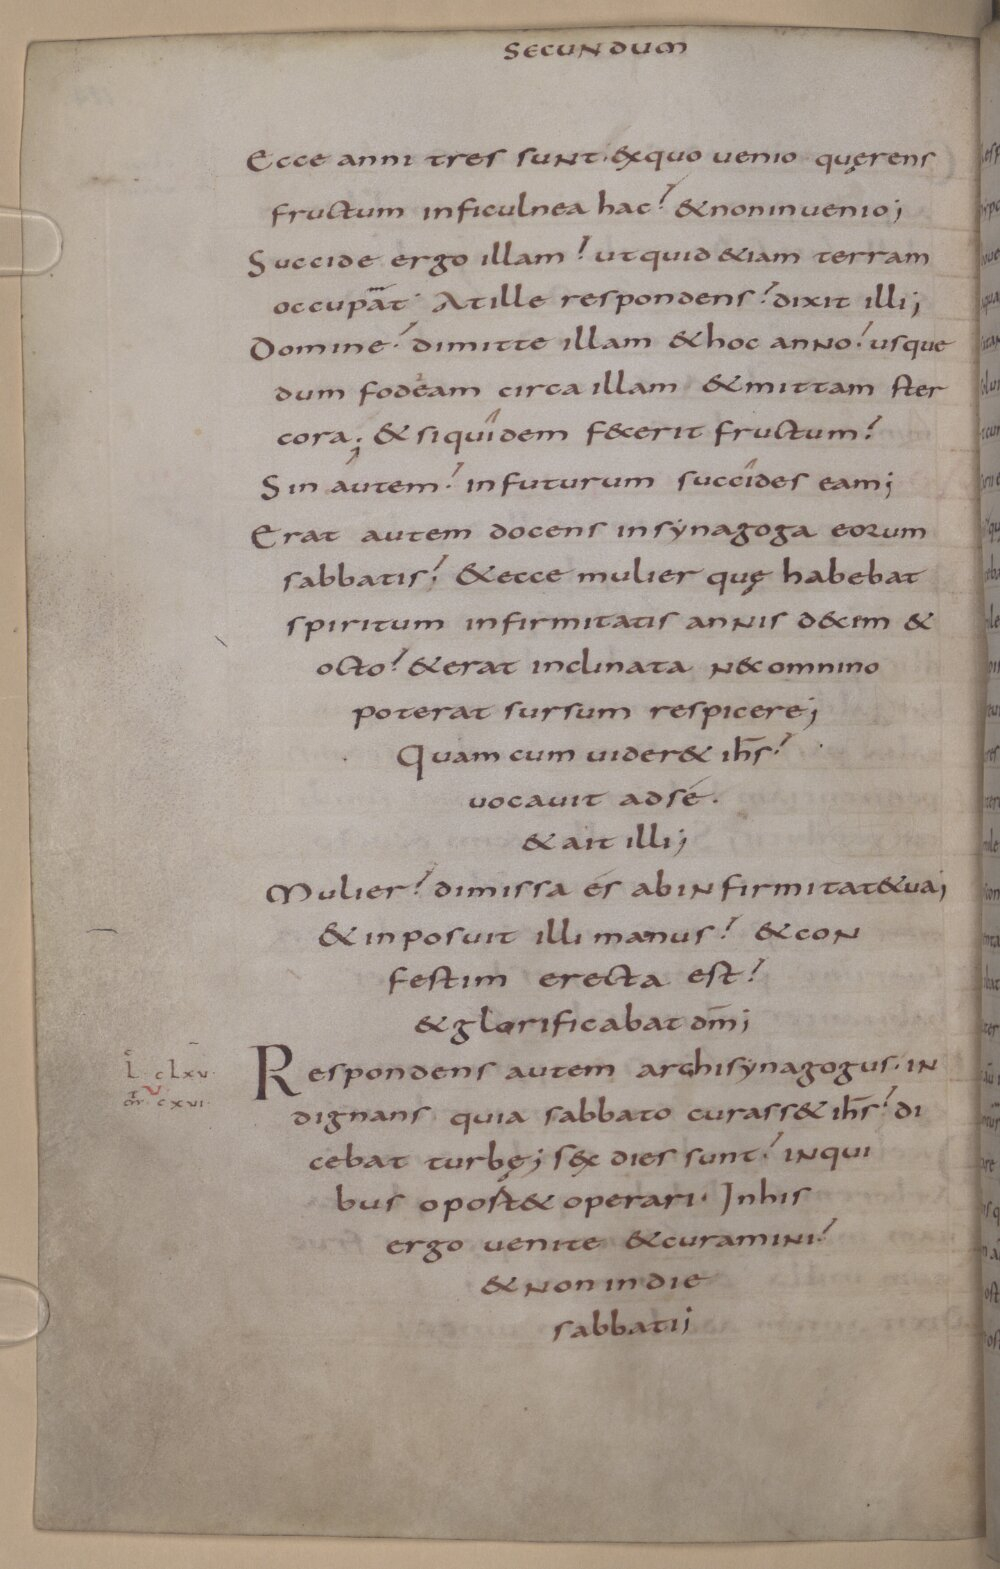 SECUNDUM
Ecce anni tres sunt· exquo uenio quęrens
fructum inficulnea hac? &noninuenio;
Succide ergo illam? utquid &iam terram
occupat· Atille respondens? dixit illi;
Domine? dimitte illam &hoc anno? usque
dum fodeam circa illam &mittam ster
cora; & siquidem fecerit fructum?
Sin autem? infuturum succides eam;
Erat autem docens insynagoga eorum
sabbatis? &ecce mulier quę habebat
spiritum infirmitatis annis decem &
octo? &erat inclinata nec omnino
poterat sursum respicere;
Quam cum uider& ih̅s?
uocauit adsé.
&ait illi;
Mulier? dimissa és abinfirmitat&ua;
&inposuit illi manus? &con
festim erecta est?
&glorificabat dm̅;
Respondens autem archisynagogus· in
dignans quia sabbato curass& ih̅s? di
cebat turbę; sex dies sunt? inqui
bus oport& operari· Inhis
ergo uenite &curamini?
&nonindie
sabbati;
L· cLxv·
mr· cxvi·